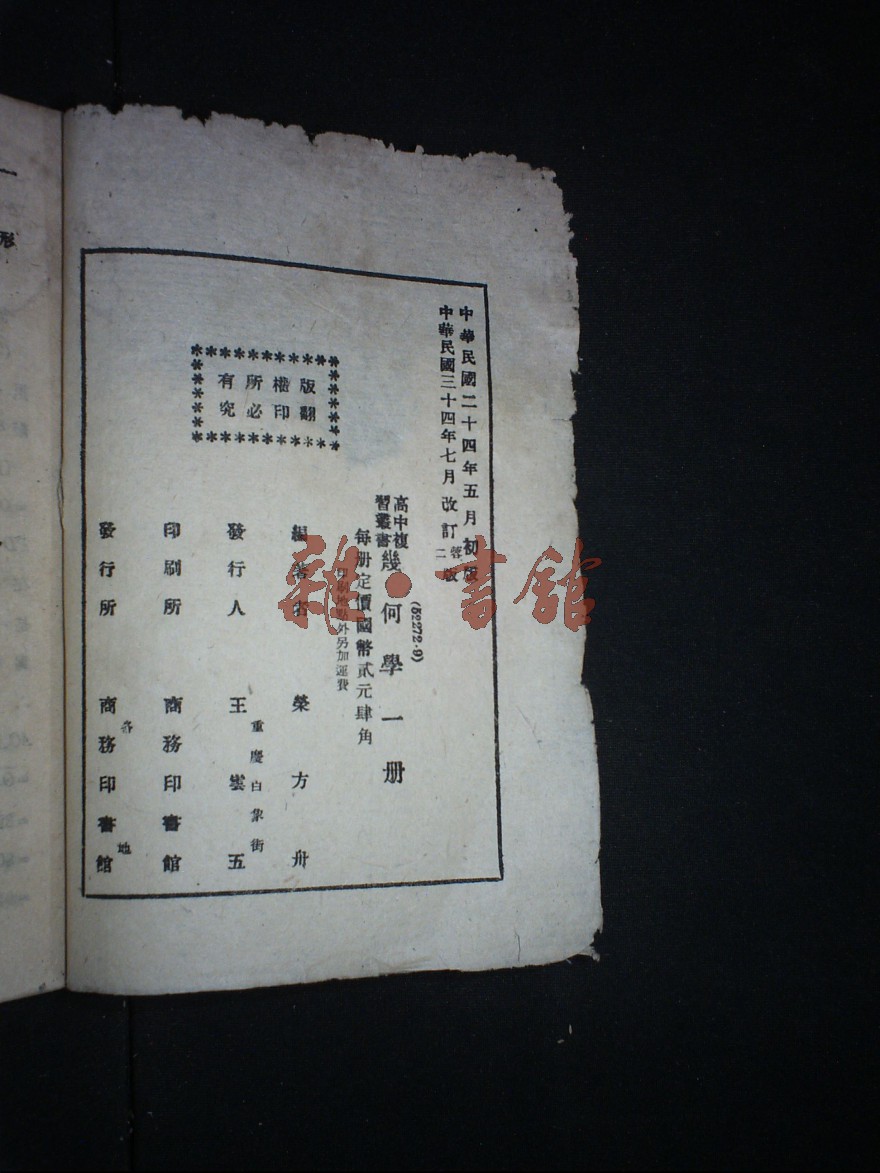 中華民國二十四年五月初版
中華民國三十四年七月改訂蓉二版
(52272·9)
高中複習叢書 幾何學一册
每册定價國幣貳元肆角
印刷地點外另加運費
版權所有
翻印必究
編著者 榮方舟
發行人 王雲五
重慶白象街
印刷所 商務印書館
發行所 商務印書館
各地
雜·書館
形